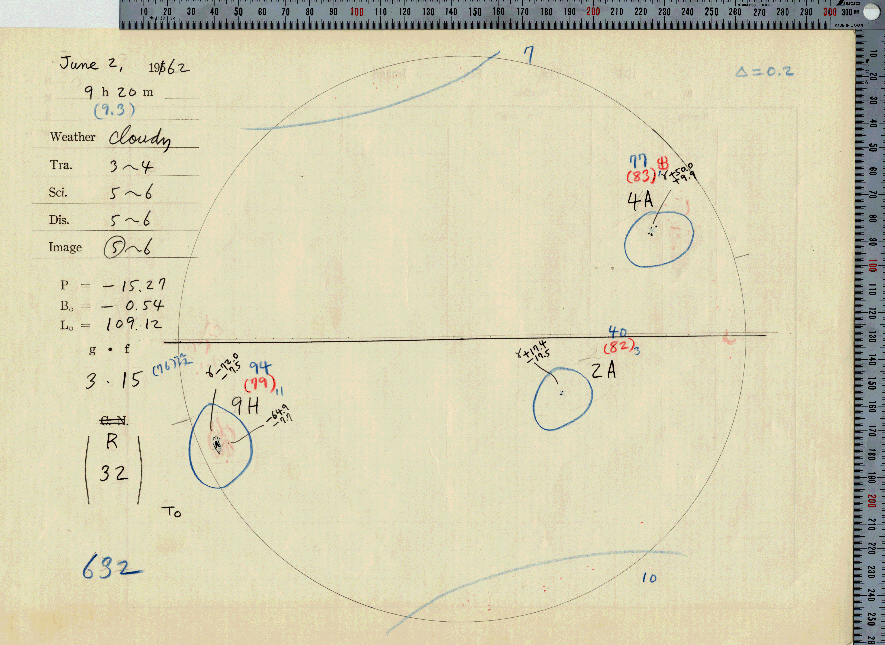 June 2, 1962
9 h 20 m
(9.3)
Weather cloudy
Tra. 3~4
Sci. 5~6
Dis. 5~6
Image 5~6
P = -15.27
B₀ = - 0.54
L₀ = 109.12
g · f
3 · 15
R
32
632
T₀
7
Δ=0.2
77
(83)
4A
40
(82)3
2A
γ+17.4
-17.5
94
(79)11
9H
-64.9
-9.7
10